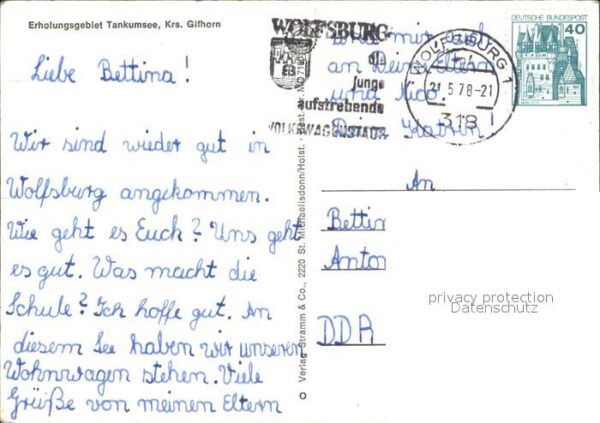 Erholungsgebiet Tankumsee, Krs. Gifhorn
Liebe Bettina!
Wir sind wieder gut in
Wolfsburg angekommen.
Wie geht es Euch? Uns geht
es gut. Was macht die
Schule? Ich hoffe gut. An
diesem See haben wir unseren
Wohnwagen stehen. Viele
Grüße von meinen Eltern
und mir auch
an Deine Eltern
und Nico.
Deine Katrin!
WOLFSBURG
die
junge
aufstrebende
VOLKSWAGENSTADT
WOLFSBURG 1
21.5.78-21
318
DEUTSCHE BUNDESPOST
40
Verlag Stramm & Co., 2220 St. Michaelisdonn/Holst.
An
Bettin
Anton
DDR
privacy protection
Datenschutz